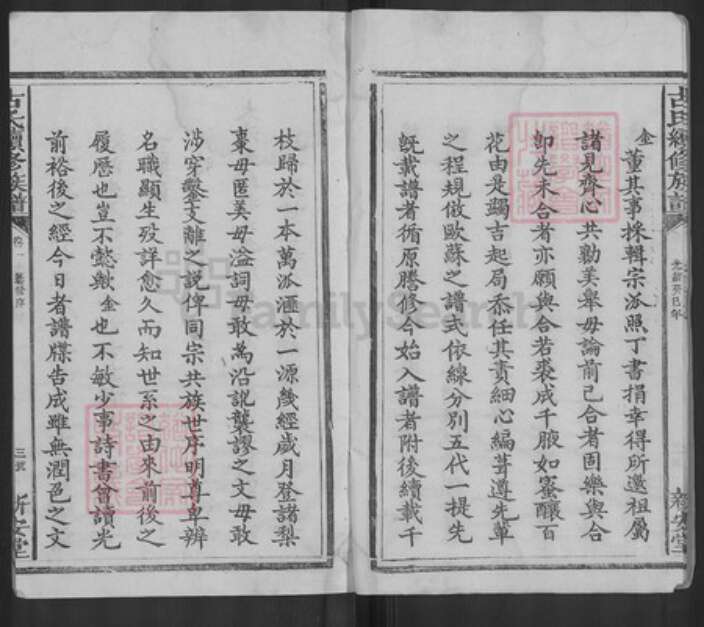 古氏續修族譜
光緒癸巳年
新安堂
金
董其事採輯宗派照丁書捐幸得所邀祖屬
諸見齊心共勷美舉毋論前已合者固樂與合
即先未合者亦願與合若裘成千腋如蜜釀百
花由是蠲吉起局忝任其責細心編葺遵先軰
之程規倣歐蘇之譜式依線分別五代一提先
旣載譜者循原謄修今始入譜者附後續載千
枝歸於一本萬派滙於一源幾經歲月登諸梨
棗毋匿美毋溢詞毋敢為沿訛襲謬之文毋敢
涉穿鑿支離之説俾同宗共族世序明尊卑辨
名職顯生殁詳愈久而知世系之由來前後之
履歷也豈不懿歟金也不敏少事詩書曾讀光
前裕後之經今日者譜牒告成雖無潤色之文
古氏續修族譜
卷一
新安堂
FamilySearch